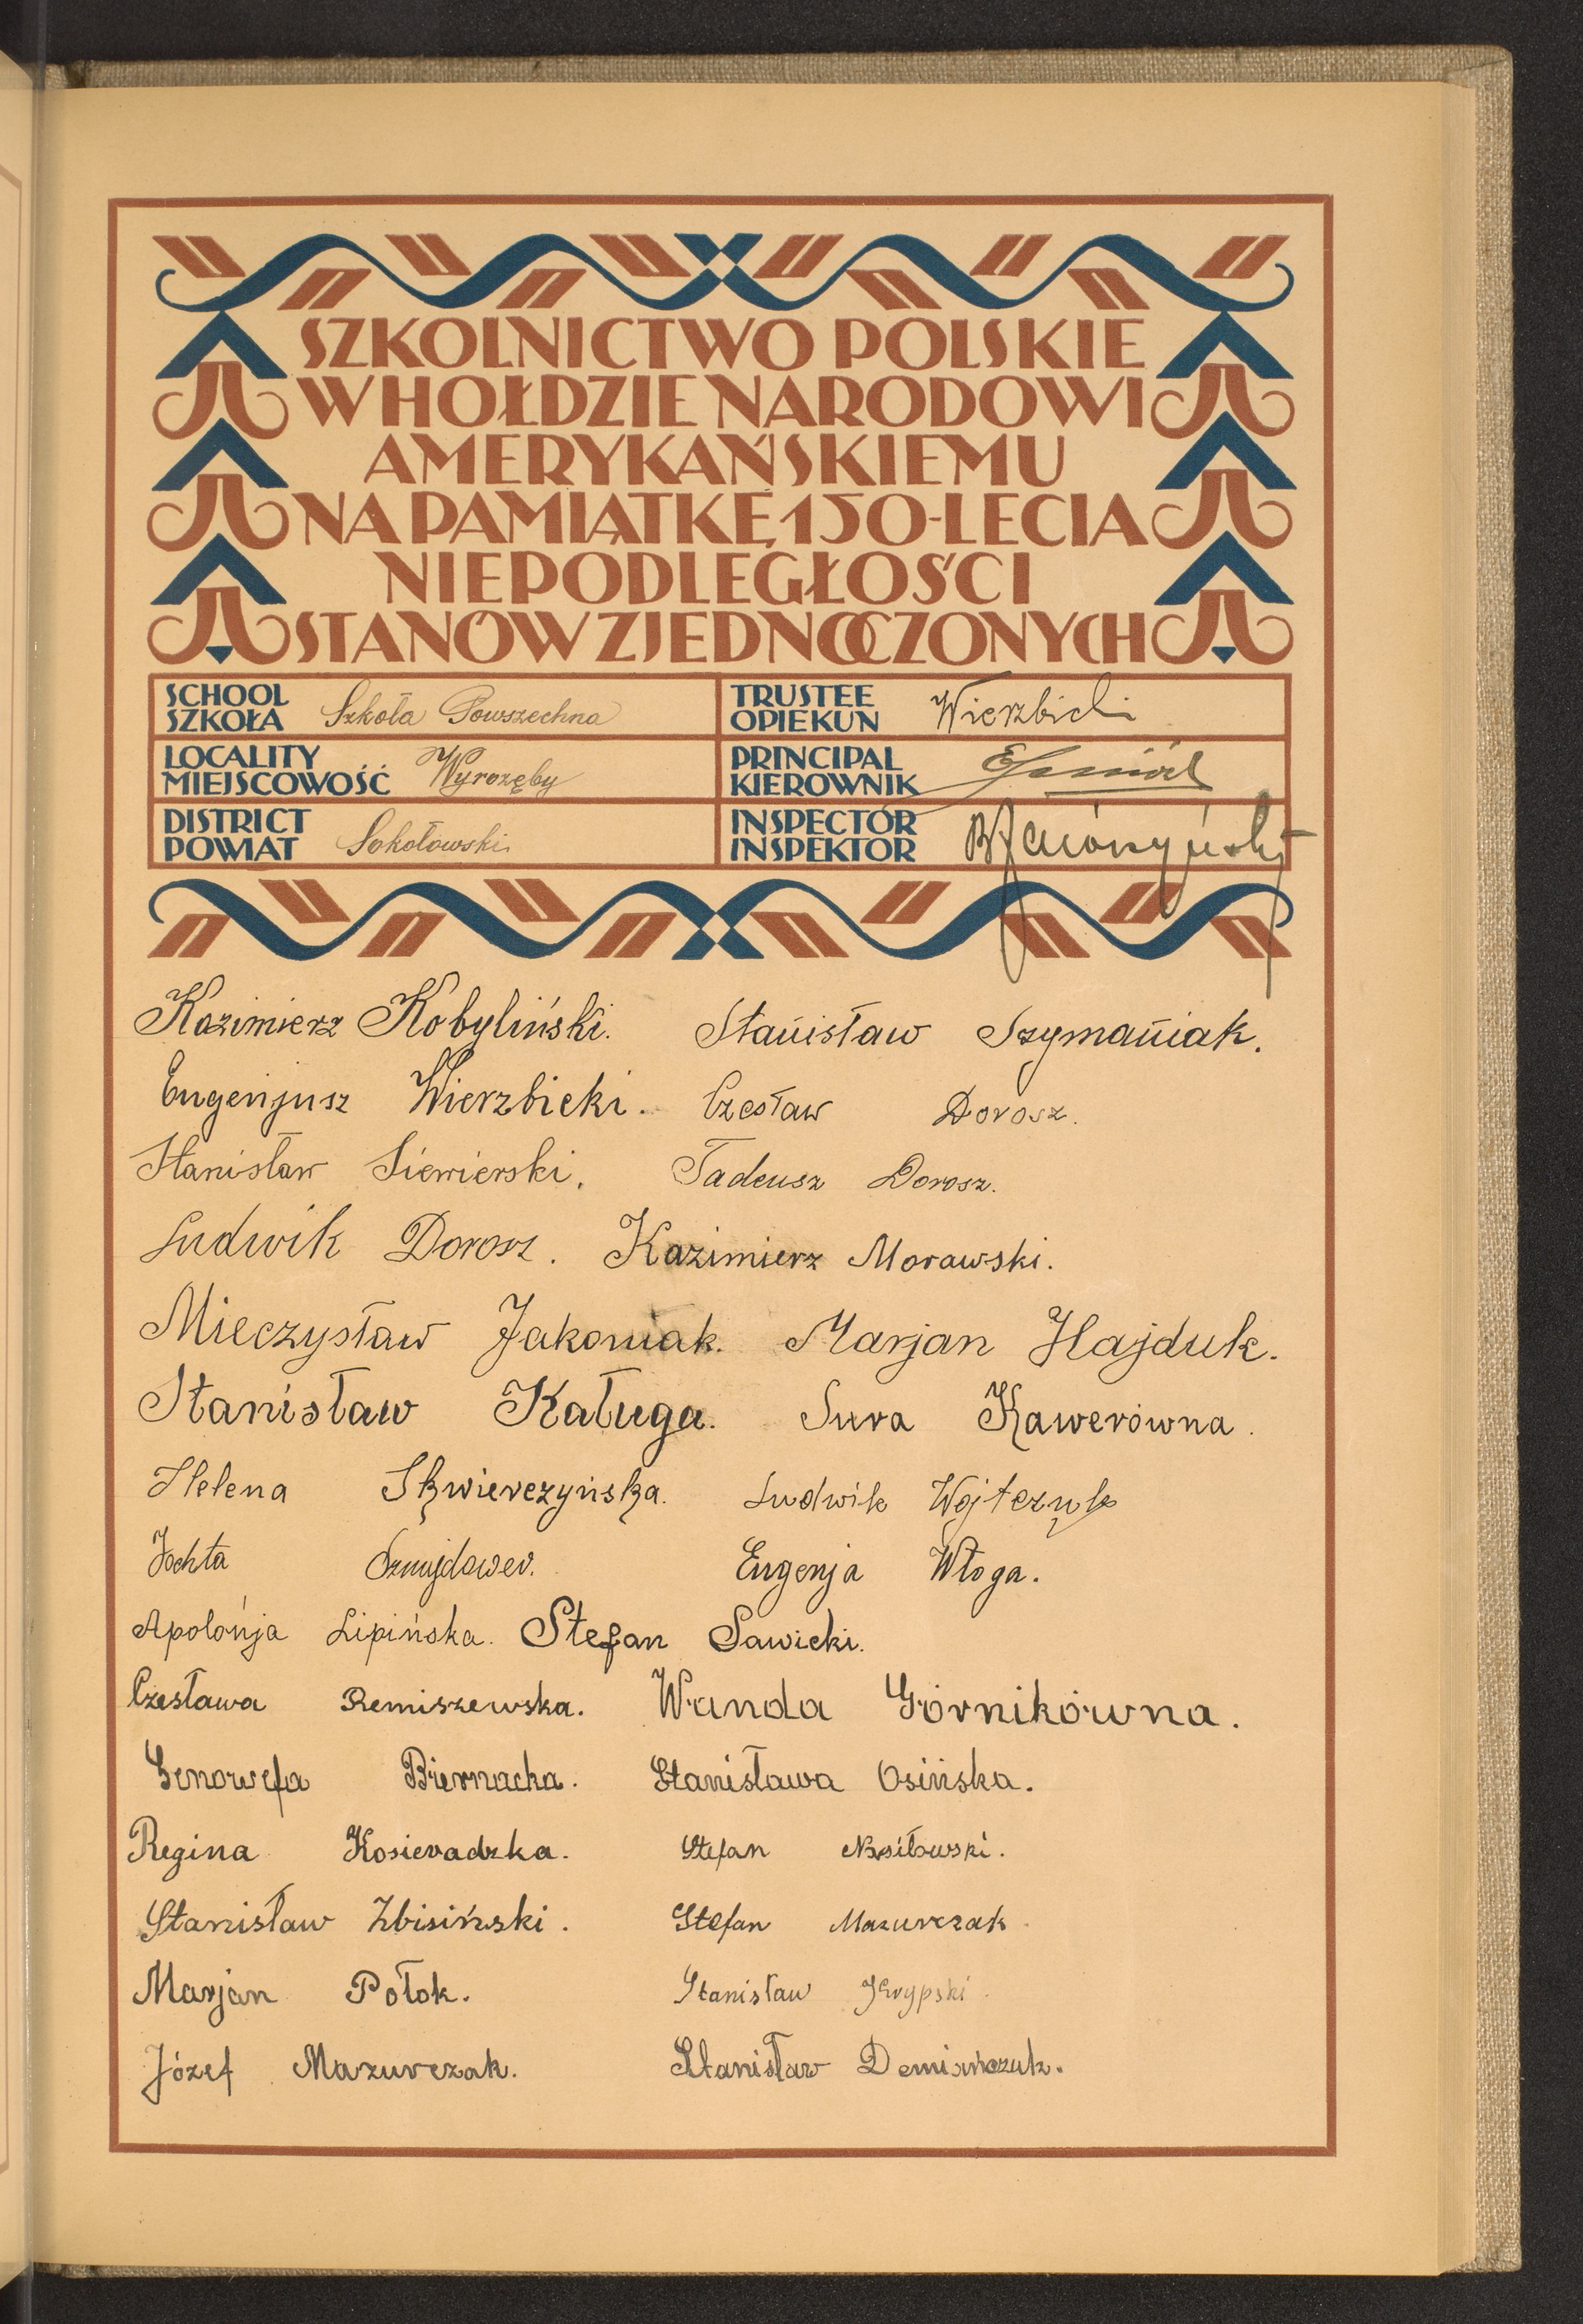 SZKOLNICTWO POLSKIE
W HOŁDZIE NARODOWI
AMERYKAŃSKIEMU
NA PAMIĄTKĘ 150-LECIA
NIEPODLEGŁOŚCI
STANÓW ZJEDNOCZONYCH
SCHOOL
SZKOŁA Szkoła Powszechna
TRUSTEE
OPIEKUN Wierzbicki
LOCALITY
MIEJSCOWOŚĆ Wyrozęby
PRINCIPAL
KIEROWNIK
DISTRICT
POWIAT Sokołowski
INSPECTOR
INSPEKTOR
Kazimierz Kobyliński. Stanisław Szymaniak.
Eugenjusz Wierzbicki. Czesław Dorosz.
Stanisław Siewierski. Tadeusz Dorosz.
Ludwik Dorosz. Kazimierz Morawski.
Mieczysław Jakoniak. Marjan Hajduk.
Stanisław Kaługa. Sura Kawerówna.
Helena Skwierczyńska. Ludwik Wojtczuk
Jochta Szmujdower. Eugenja Włoga.
Apolonja Lipińska. Stefan Sawicki.
Czesława Remiszewska. Wanda Górnikówna.
Genowefa Biernacka. Stanisława Osińska.
Regina Kosieradzka. Stefan Nasiłowski.
Stanisław Zbisiński. Stefan Mazurczak
Marjan Połok. Stanisław
Józef Mazurczak. Stanisław Demiańczuk.